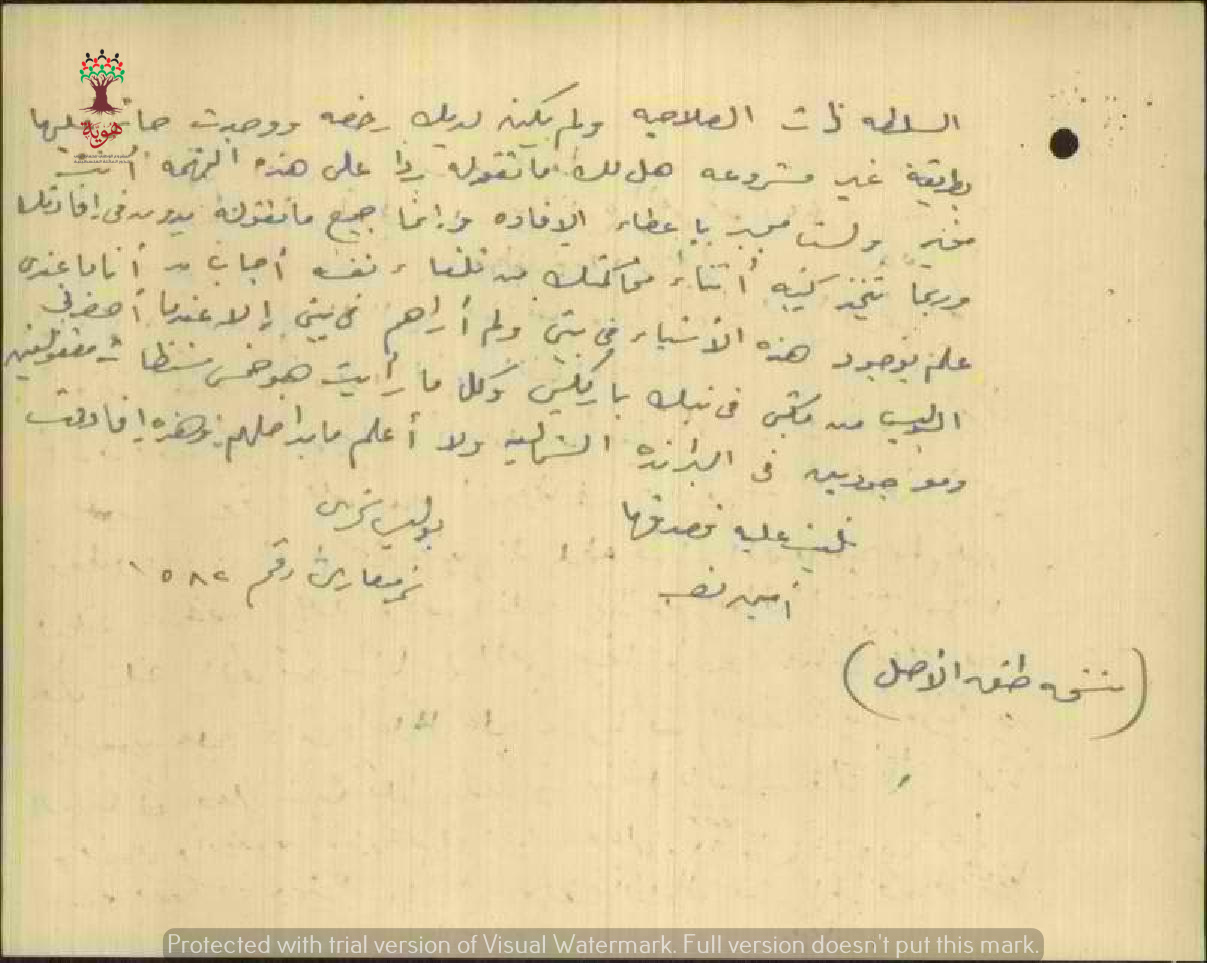 هوية
السلطه ذات الصلاحيه ولم يكن لديك رخصه ووجدت حائز عليها
بطريقة غير مشروعه هل لك ما تقوله ردا على هذه التهمه أنت
مخير ولست مجبر بإعطاء الافاده وانما جميع ما تقوله يدون في افادتك
وربما تتخذ كبينه أثناء محاكمتك من تلقاء نفسه أجاب :- أنا ما عندي
علم بوجود هذه الأشياء في بيتي ولم أراهم في بيتي إلا عندما أحضرني
البوليس من مكتبي في بنك باركليس وكل ما رأيت هو خمس شنطات مقفولين
وموجودين في البرانده الشماليه ولا أعلم ما بداخلهم وهذه إفادتي
تليت عليه فصدقها
بوليس تحري
أمين
نمرة رقم ١٥٨٢
(نسخه طبق الأصل)
Protected with trial version of Visual Watermark. Full version doesn't put this mark.